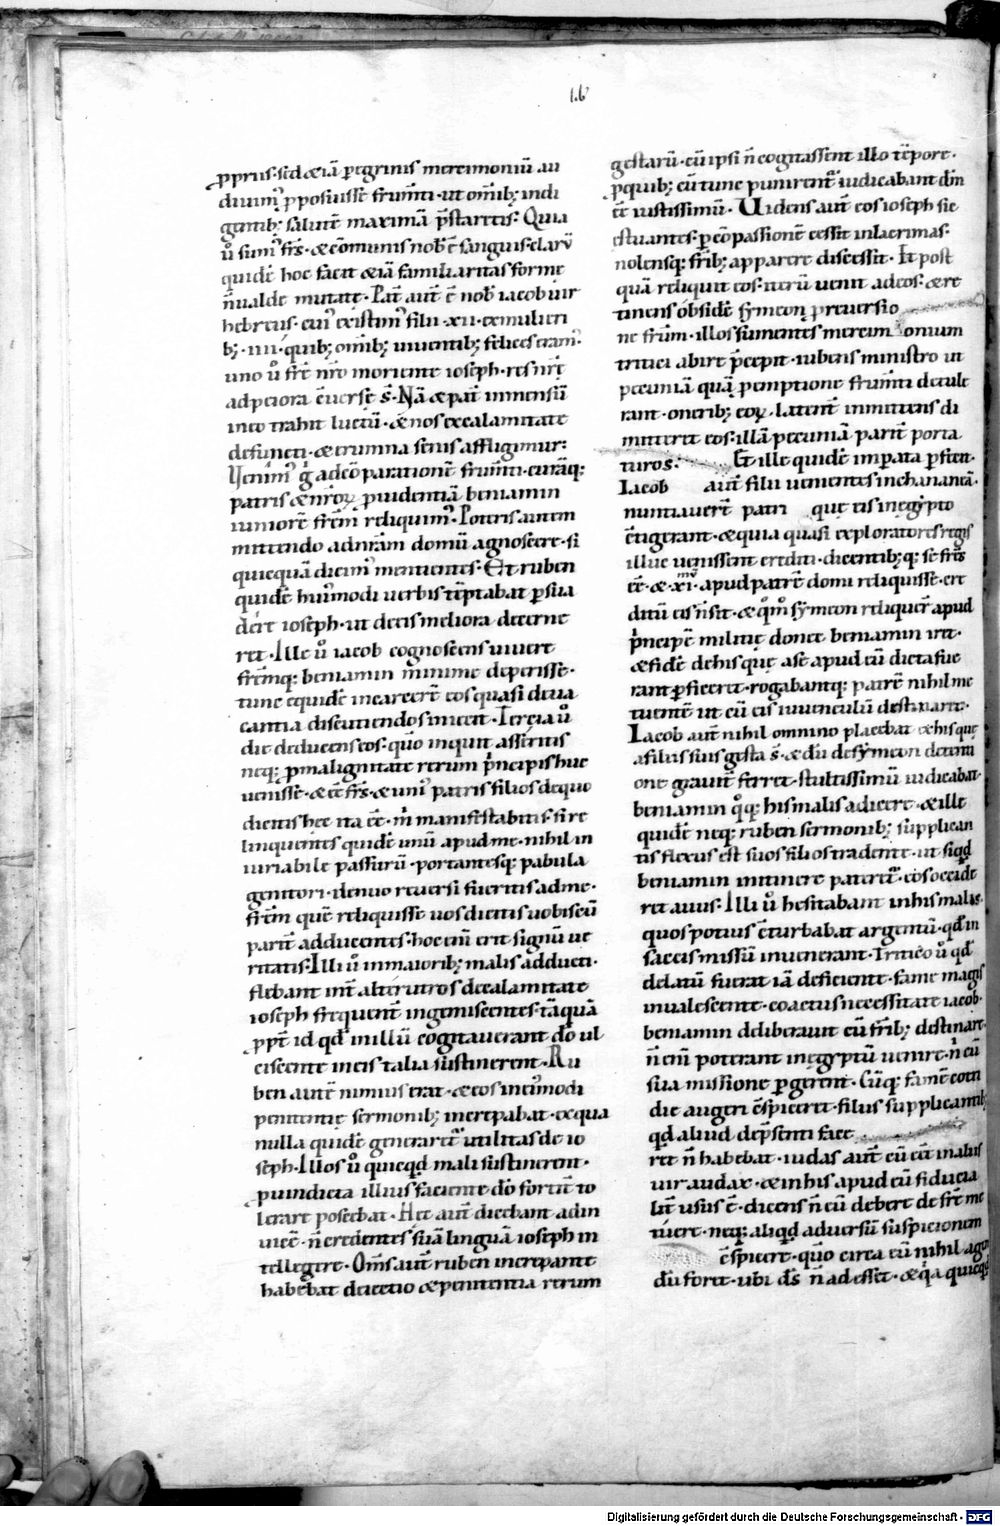 16
ꝓpriis· sed &iā peregrinis mercimoniū au
diuim᷒ ꝓposuisse frum̄ti· ut om̄ib; indi
gentib; salutē maximā p̄staretis· Quia
u̇ sum᷒ fr̄s· & cōmunis nob ē sanguis· clarū
quidē hoc facit &iā familiaritas formę
n̄ ualde mutatę· Pat̄ aut̄ ē nob iacob uir
hebreus· cui᷒ existim᷒ filii ·xii· ex mulieri
b; ·iiii· quib; om̄ib; uiuentib; felices eram᷒·
uno u̇ fr̄e nr̄o moriente ioseph· res nr̄ę
ad peiora ēuersę s̄· Nā & pat̄ inmensū
in eo trahit luctū· & nos ex calamitate
defuncti· & erumna senis affligimur·
Venim᷒ g ad eōparationē frum̄ti· curāq;
patris & nr̄oꝝ ꝓuidentiā beniamin
iuniorē fr̄em reliquim᷒· Poteris autem
mittendo ad nr̄am domū agnoscere· si
quicquā dicim᷒ mentientes· Et ruben
quidē hui᷒modi uerbis tēptabat ꝑsua
dere ioseph· ut de eis meliora decerne
ret· Ille u̇ iacob cognoscens uiuere
fr̄emq; beniamin minime deperisse·
tunc equidē in carcere eos quasi de ua
cantia discutiendos iniecit· Tercia u̇
die deducens eos· quō inquit asseritis
neq; ꝓ malignitate rerum p̄ncipis huc
uenisse· & eē fr̄s· & uni᷒ patris filios de quo
dicitis hęc ita eē· m̄ manifestabitis· si re
linquentes quidē unū apud me· nihil in
iuriabile passurū· portantesq; pabula
genitori· denuo reuersi fueritis ad me·
fr̄em quē reliquisse uos dicitis uobiscū
parit̄ adducentes· hoc enī erit signū ue
ritatis· Illi u̇ in maiorib; malis adducti·
flebant int̄ alterutros de calamitate
ioseph frequent̄ ingemiscentes· tāquā
ꝓpt̄ id qđ in illū cogitauerant dō ul
ciscente in eis talia sustinerent· Ru
ben autē nimius erat· & eos incui᷒modi
penitentię sermonib; increpabat· ex qua
nulla quidē generaret᷒ utilitas de io
seph· Illos u̇ quicqđ mali sustinerent·
ꝓ uindicta illius faciente dō fortit̄ to
lerare poscebat· Hęc aut̄ dicebant ad in
uicē· n̄ credentes suā linguā ioseph in
tellegere· Om̄s aut̄ ruben increpante
habebat deiectio & penitentia rerum
gestarū· cū ipsi n̄ cogitassent illo tēpore·
ꝓ quib; cū tunc punirent᷒ iudicabant dm̄
eē iustissimū· Videns aut̄ eos ioseph sic
estuantes· ꝑ cōpassionē cessit in lacrimas·
nolensq; fr̄ib; apparere discessit· Et post
quā reliquit eos· iterū uenit ad eos· & re
tinens obsidē symeon ꝓ reuersio
ne fr̄um· illos sumentes mercim onium
tritici abire p̄cepit· iubens ministro ut
pecuniā quā ꝓ emptione frum̄ti detule
rant· onerib; eoꝝ latent̄ inmittens di
mitteret eos· illā pecuniā parit̄ porta
turos· Et ille quidē imꝑata ꝑfecit·
Iacob aut̄ filii uenientes in chananeā·
nuntiauer̄ patri quę eis in ęgypto
ētigerant· & quia quasi exploratores regis
illuc uenissent crediti· dicentib; q; se fr̄es
eē· & ·xi· apud patrē domi reliquisse· cre
ditū eis n̄ sit· & qm̄ symeon reliquer̄ apud
p̄ncipē militię donec beniamin iret·
& fidē de his quę a se apud eū dicta fue
rant ꝑficeret· rogabantq; patrē nihil me
tuentē ut cū eis iuuenculū destinaret·
Iacob aut̄ nihil omnino placebat ex his quę
a filiis suis gesta s̄· & dū de symeon detenti
one grauit̄ ferret· stultissimū iudicabat·
beniamin qq; his malis adicere· & ille
quidē neq; ruben sermonib; supplican
tis flexus est suos filios tradente· ut siqđ
beniamin in itinere pateret᷒· eos occide
ret auus· Illi u̇ hesitabant in his malis·
quos potius ēturbabat argentū· qđ in
saccis missū inuenerant· Tritico u̇ qđ
delatū fuerat iā deficiente· fame magis
inualescente· coactus necessitate iacob·
beniamin deliberauit cū fr̄ib; destinare·
n̄ enī poterant in ęgyptū uenire· n̄ cū
sua missione ꝑgerent· Cūq; famē coti
die augeri ēspiceret· filiis supplicantib;
qđ aliud de p̄senti face
ret n̄ habebat· iudas aut̄ cū eēt in aliis
uir audax· & in his apud eū fiducia
lit̄ usus ē· dicens n̄ eū debere de fr̄e me
tuere· neq; aliqđ aduersū suspicionem
ēspicere· quō circa eū nihil agen
dū foret· ubi ds̄ n̄ adesset· & q̇a quicqđ
Digitalisierung gefördert durch die Deutsche Forschungsgemeinschaft - DFG